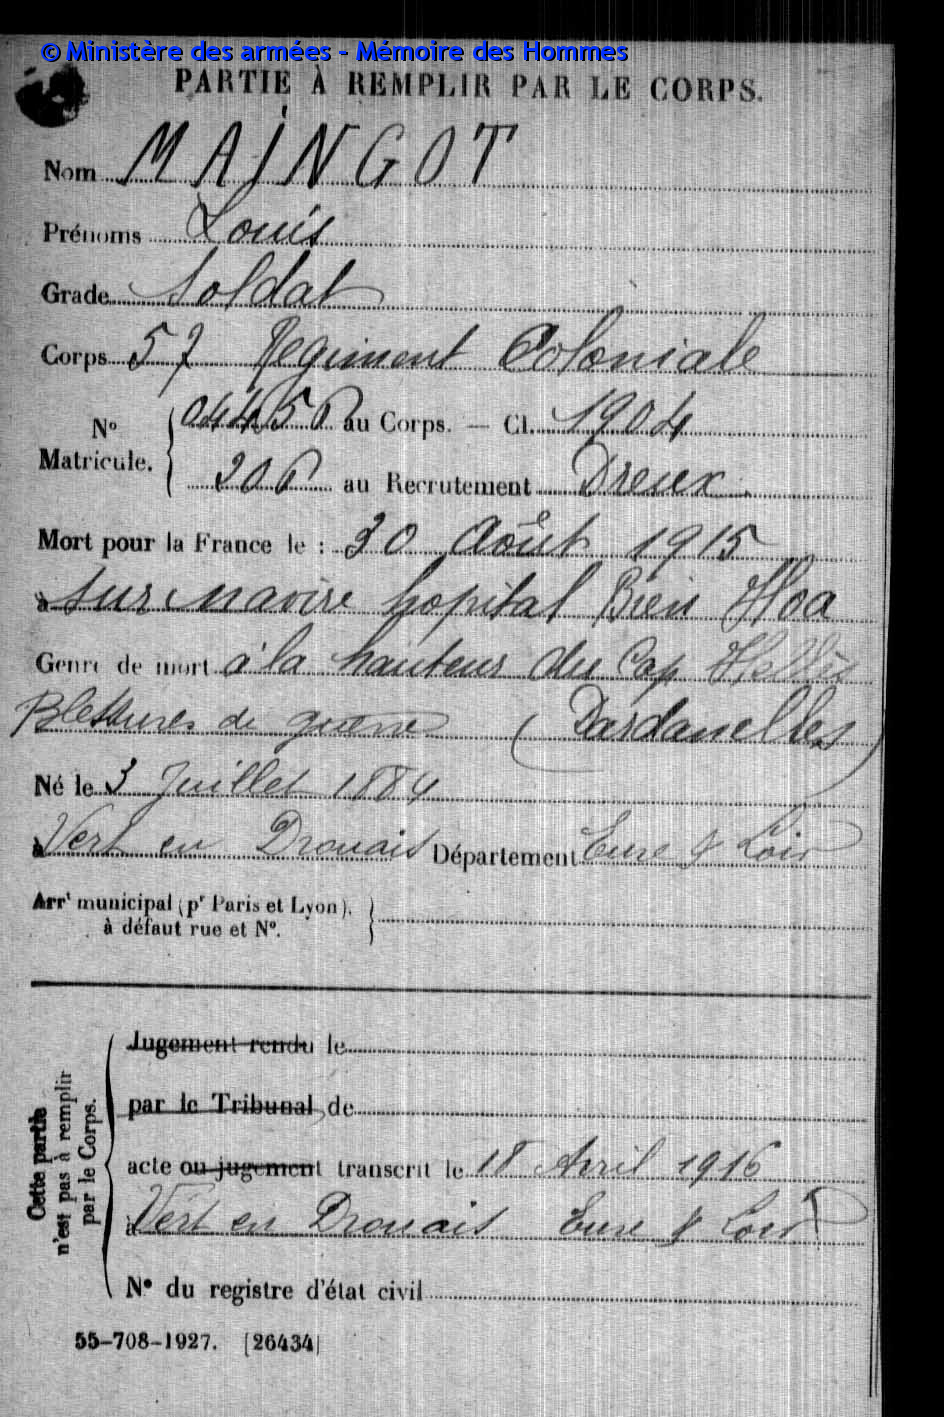 © Ministère des armées - Mémoire des Hommes
PARTIE À REMPLIR PAR LE CORPS.
Nom MAINGOT
Prénoms Louis
Grade Soldat
Corps 57 Regiment Coloniale
N° Matricule. 04456 au Corps. — Cl. 1904
206 au Recrutement Dreux.
Mort pour la France le : 30 Août 1915
à sur navire hopital Bien Hoa
Genre de mort à la hauteur du Cap Hellès
Blessures de guerre (Dardanelles)
Né le 3 Juillet 1884
à Vert en Drouais Département Eure & Loir
Arrt municipal (pr Paris et Lyon),
à défaut rue et N°.
Cette partie
n'est pas à remplir
par le Corps.
Jugement rendu le
par le Tribunal de
acte ou jugement transcrit le 18 Avril 1916
à Vert en Drouais Eure & Loir
N° du registre d'état civil
55-708-1927. [26434]